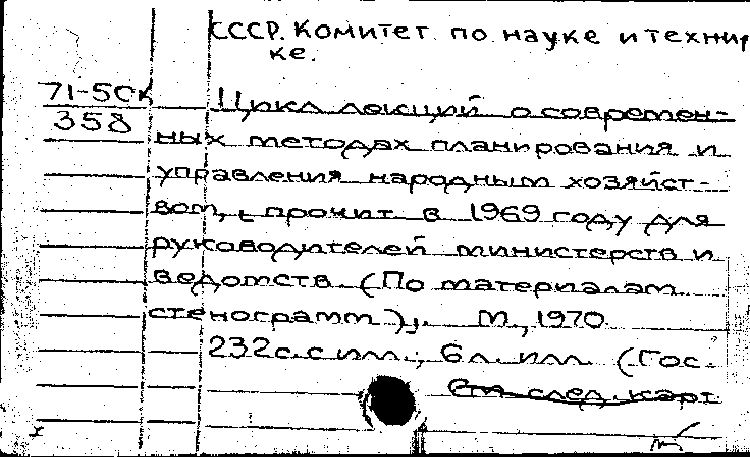 СССР. Комитет по науке и техни-
ке.
71-5СК
358
Цикл лекций о современ-
ных методах планирования и
управления народным хозяйст-
вом, прочит. в 1969 году для
руководителей министерств и
ведомств. (По материалам
стенограмм). М., 1970
232с. с илл.; 6л. илл. (Гос.
См след. карт